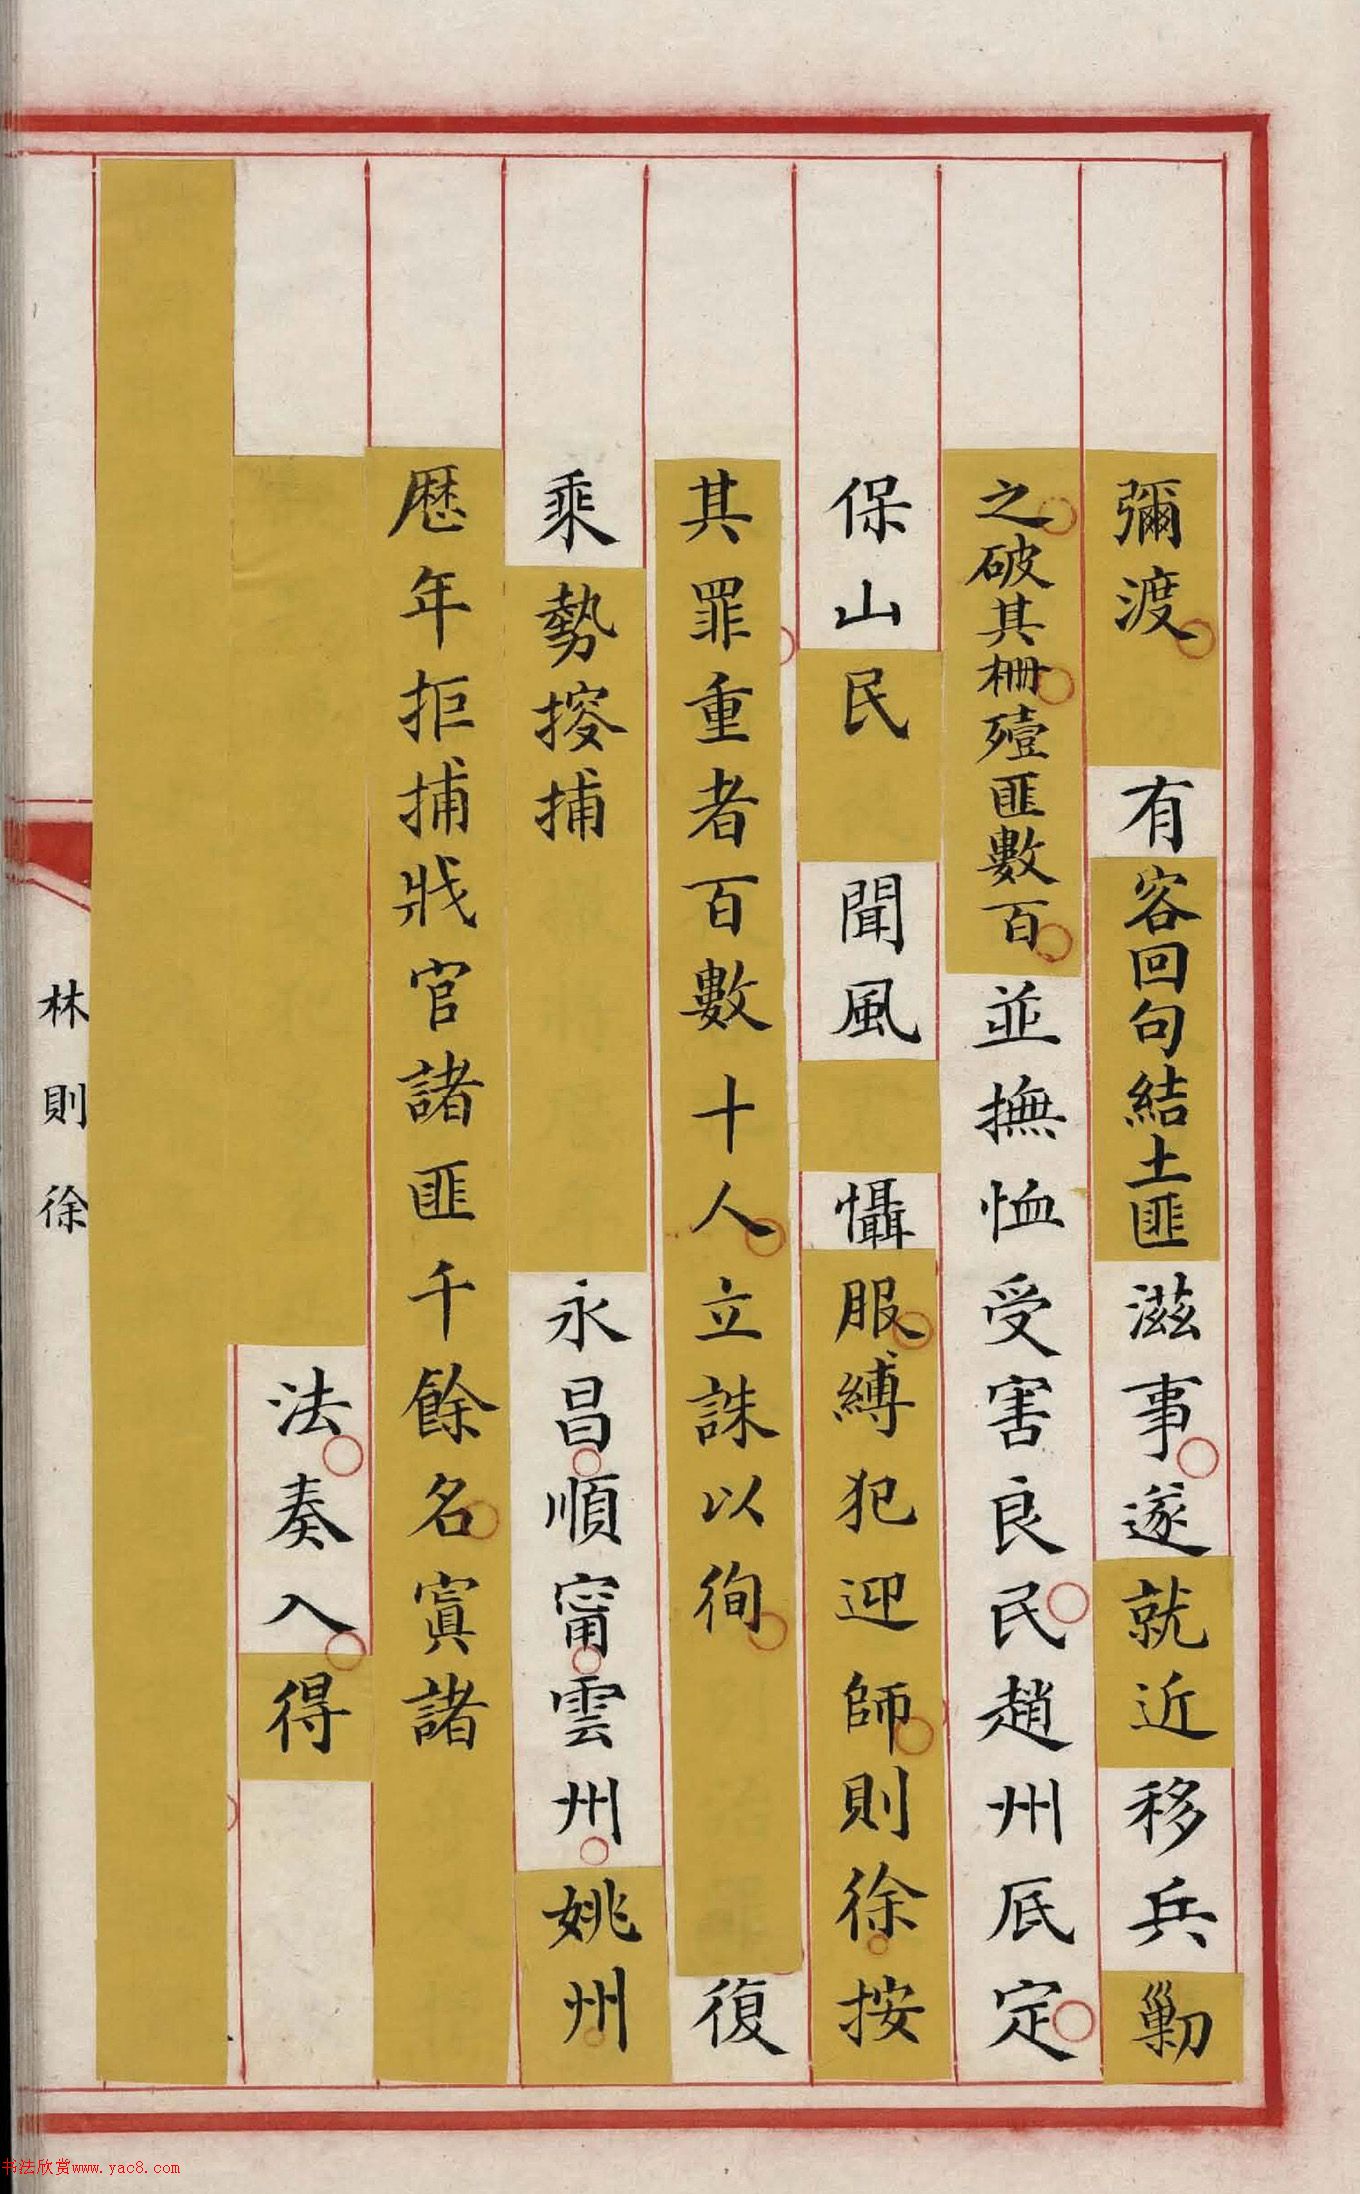 彌渡有客回句結土匪滋事遂就近移兵勦
之破其柵殪匪數百並撫恤受害良民趙州厎定
保山民聞風懾服縛犯迎師則徐按
其罪重者百數十人立誅以徇復
乘勢搜捕永昌順甯雲州姚州
歷年拒捕戕官諸匪千餘名寘諸
法奏入得
林則徐
书法欣赏www.yac8.com